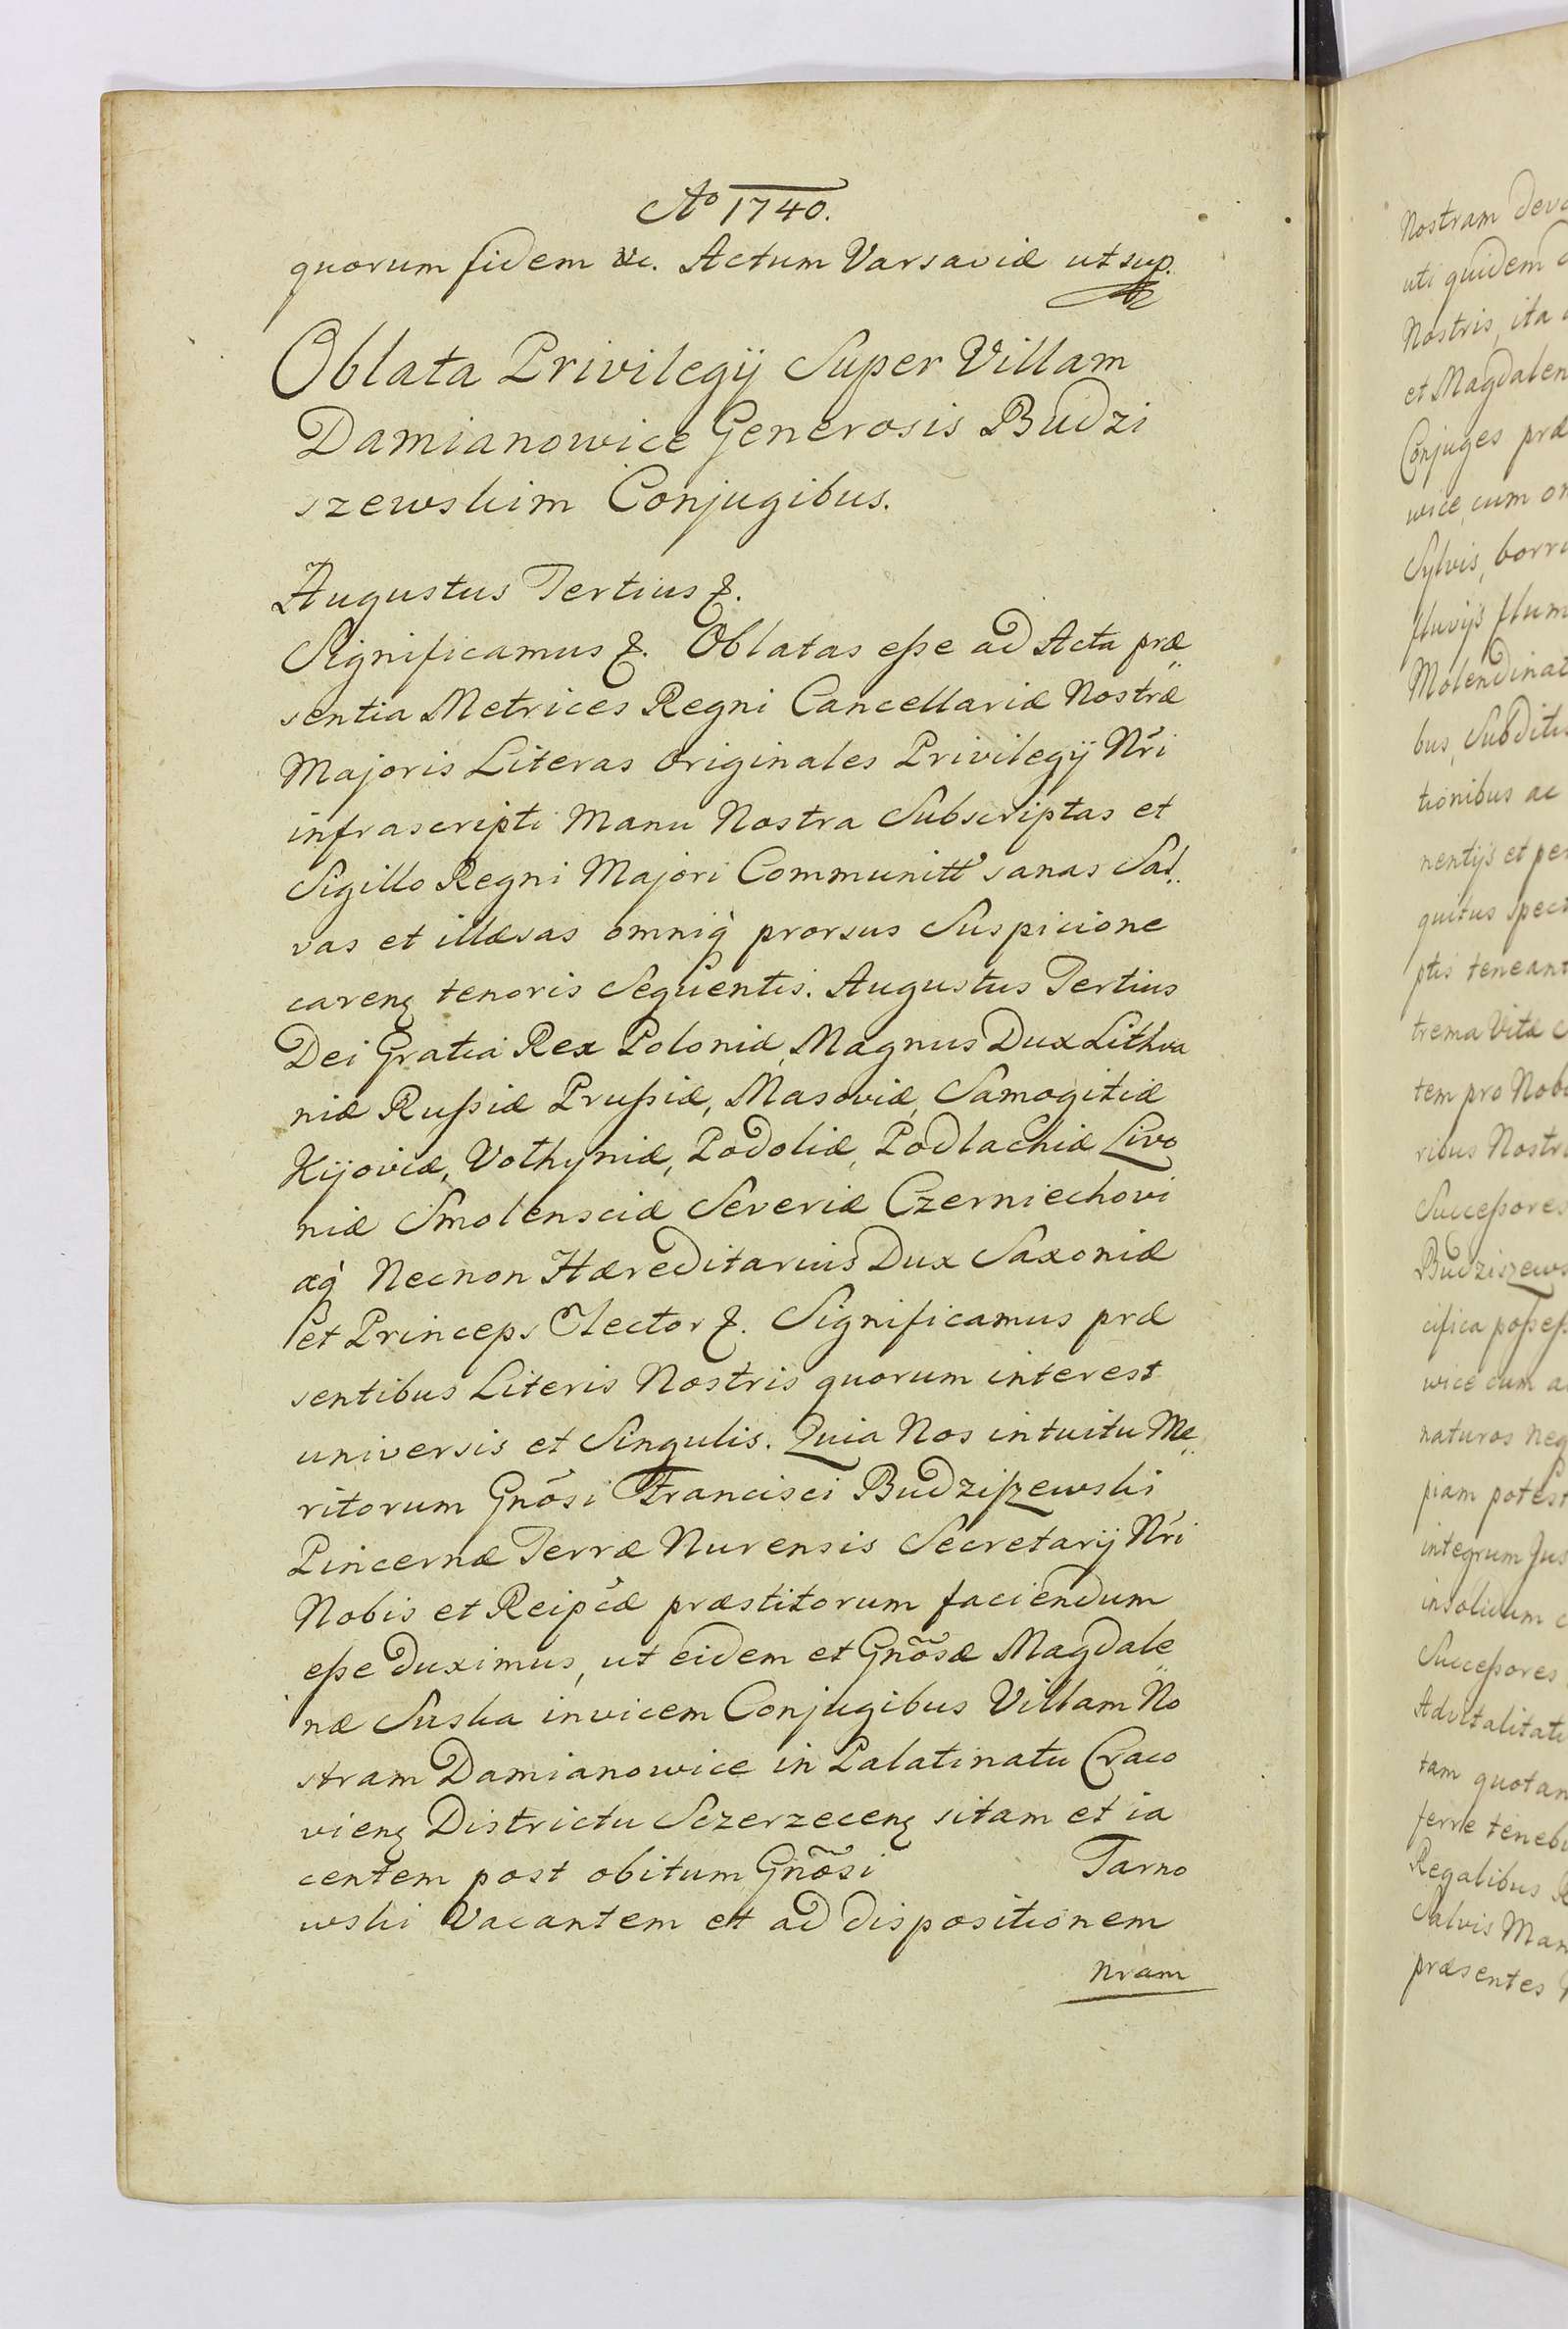 Ao 1740.
quorum fidem &c. Actum Varsaviæ ut sup.
Oblata Privilegij Super Villam
Damianowice Generosis Budzi
szewskim Conjugibus.
Augustus Tertius &.
Significamus &. Oblatas eße ad Acta præ„
sentia Metrices Regni Cancellariæ Nostræ
Majoris Literas Originales Privilegij Nri
infrascripti Manu Nostra Subscriptas et
Sigillo Regni Majori Communitt sanas Sal„
vas et illæsas omniq prorsus Suspicione
carenę tenoris Sequentis. Augustus Tertius
Dei Gratia Rex Poloniæ, Magnus Dux Lithva
niæ Rußiæ Prußiæ, Masoviæ, Samogitiæ
Kijoviæ, Volhyniæ, Podoliæ, Podlachiæ Livo
niæ Smolensciæ Severiæ Czerniechovi
æq Necnon Hæreditarius Dux Saxoniæ
et Princeps Elector &. Significamus præ
sentibus Literis Nostris quorum interest
universis et Singulis. Quia Nos intuitu Me„
ritorum Gnõsi Francisci Budzißzewski
Pincernæ Terræ Nurensis Secretarij Nri
Nobis et Reipcæ præstitorum faciendum
eße duximus, ut eidem et Gnõsæ Magdale„
næ Suska invicem Conjugibus Villam No
stram Damianowice in Palatinatu Craco
vienę Districtu Sczerzecenę sitam et ia
centem post obitum Gnõsi Tarno
wski Vacantem et ad dispositionem
nram
Nostram
uti quidem
Nostris, ita
et Magdalen
Conjuges præ
wice, cum
Sylvis, borr
fluvijs flum
Molendinat
bus, Subditis
tionibus ac
nentijs et per
quitus spec
ptis teneant
trema Vitæ
tem pro Nob
ribus Nostr
Succeßores
Budziszews
cifica poßeß
wice cum
naturos neq
piam potest
integrum Jus
insolidum
Succeßores
Advitalitat
tam quotan
ferre teneb
Regalibus
Salvis Man
præsentes